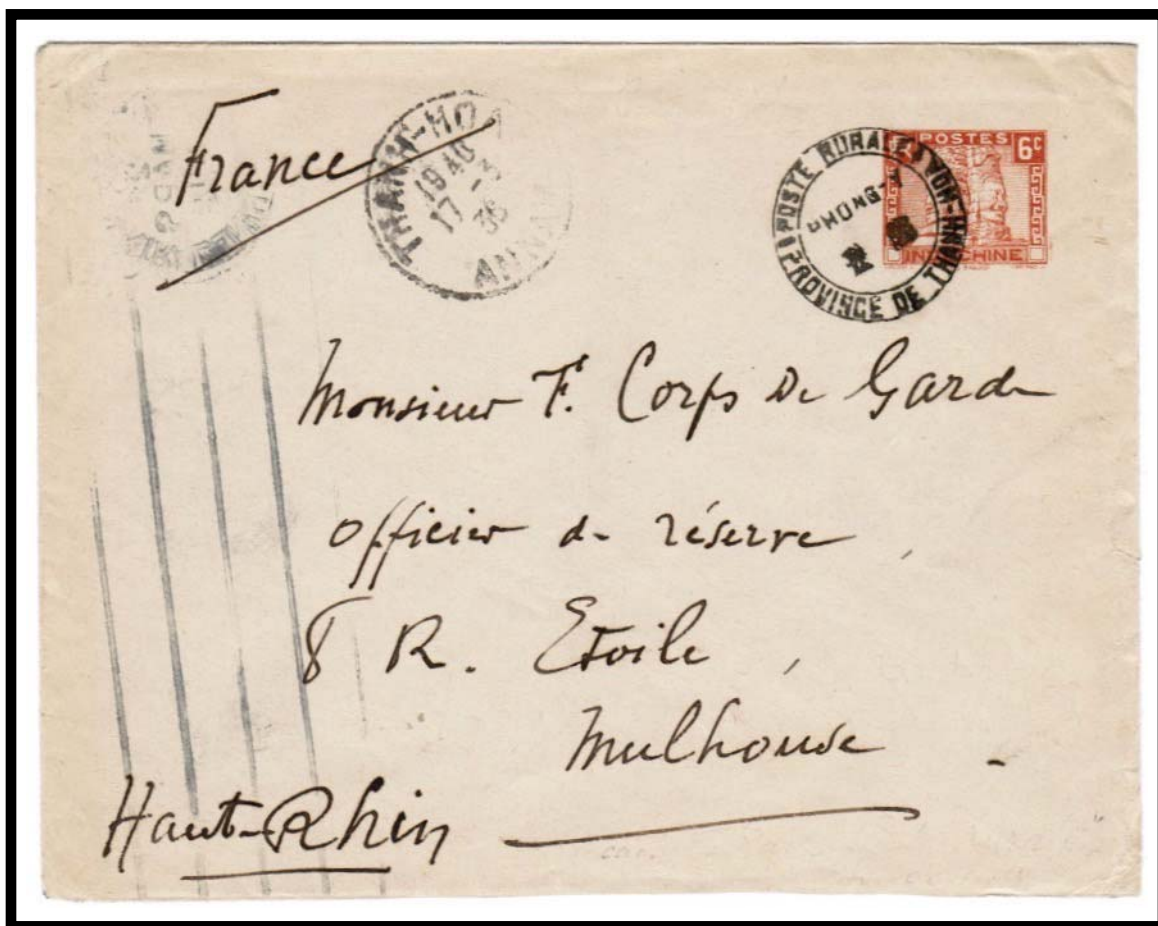 France
THANH-HOA
19 40
17 -3
36
ANNAM
POSTE RURALE
PHONG-Y
PROVINCE DE THANH-HOA
POSTES 6c
INDOCHINE
Monsieur F. Corps de Garde
Officier de réserve
8 R. Etoile,
Mulhouse -
Haut-Rhin